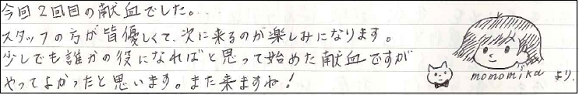 今回2回目の献血でした。...
スタッフの方が皆優しくて、次に来るのが楽しみになります。
少しでも誰かの役になればと思って始めた献血ですが
やってよかったと思います。また来ますね!
momomika より